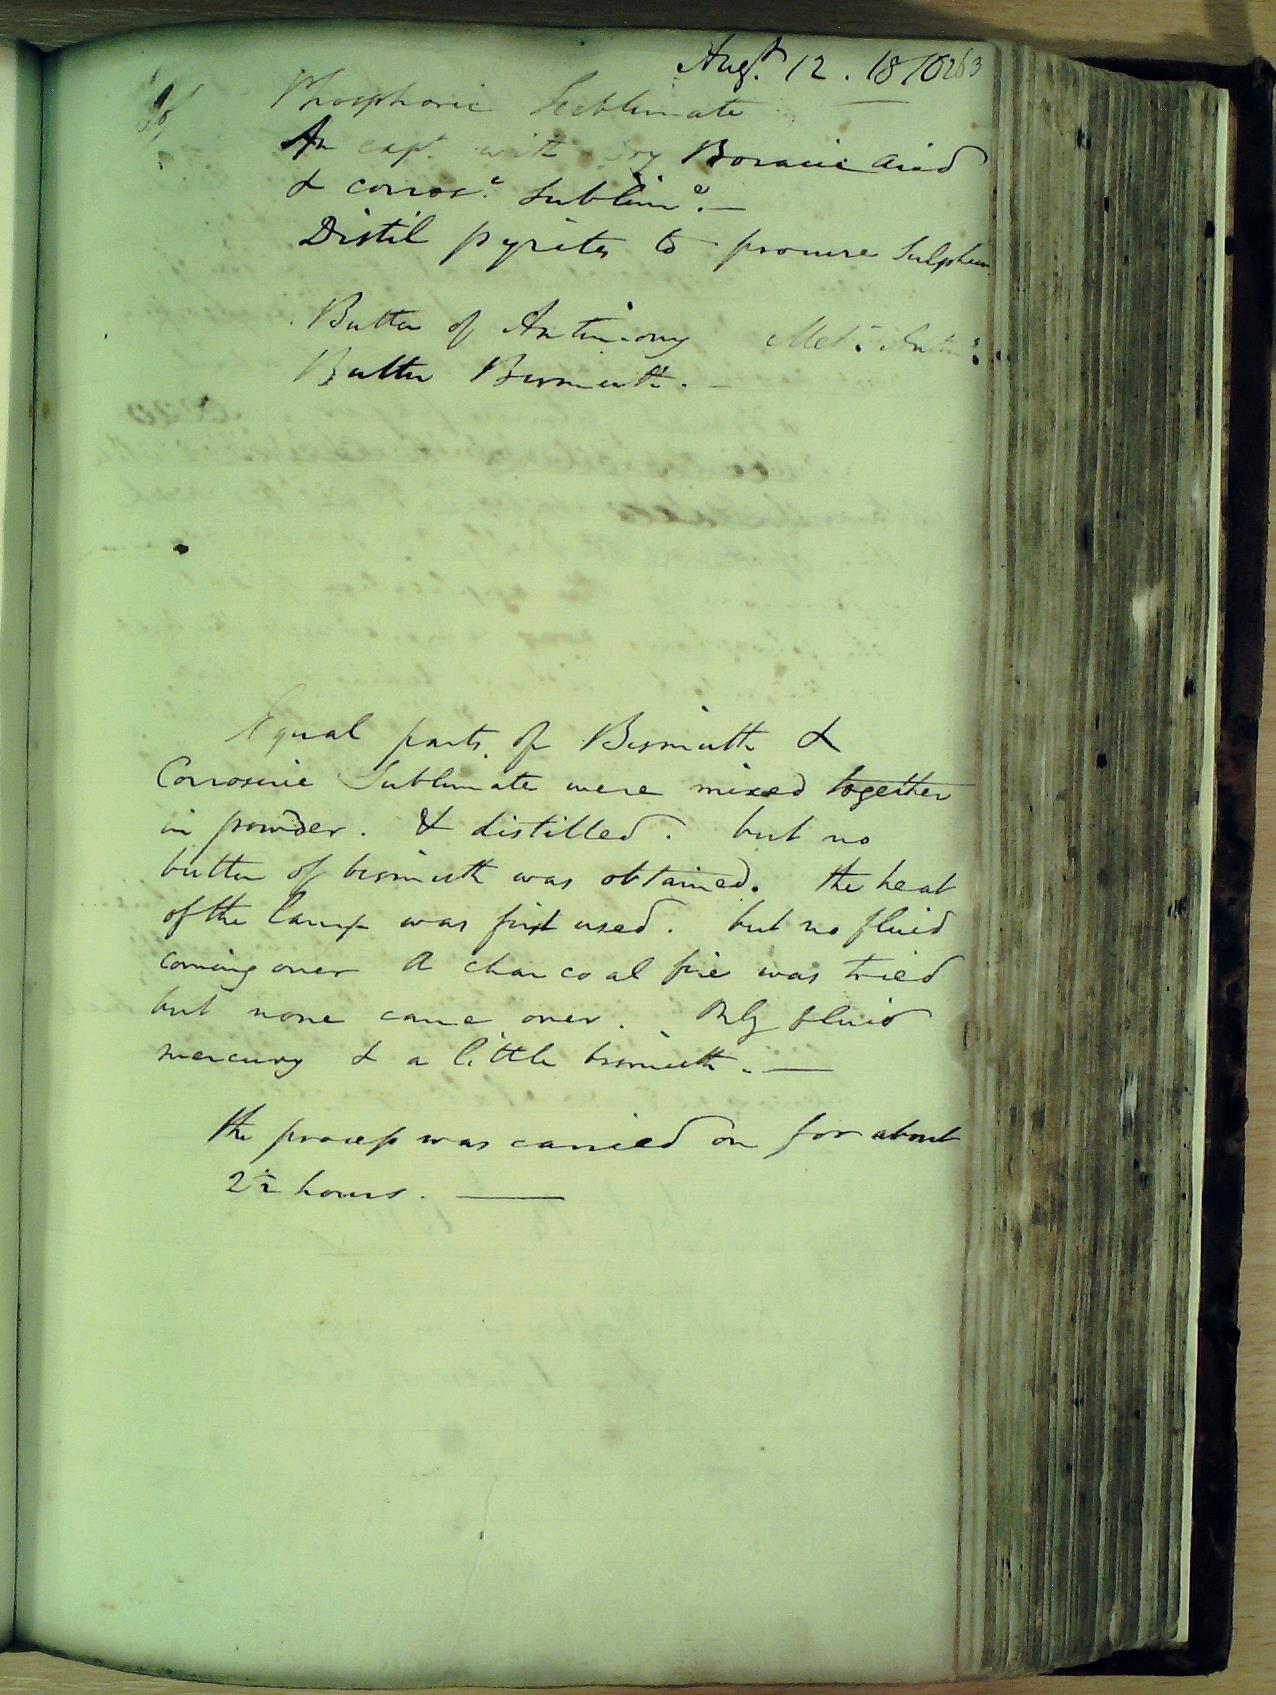 Augt. 12. 1810 263
Phosphoric Sublimate
An expt. with dry Boracic Acid
& corrosc. sublime.—
Distil pyrites to procure Sulphur
Butter of Antimony Metc. Antim
Butter Bismuth. —
Equal parts of Bismuth &
Corrosive Sublimate were mixed together
in powder. & distilled. but no
butter of bismuth was obtained. the heat
of the lamp was first used. but no fluid
coming over A charcoal fire was tried
but none came over. Only fluid
mercury & a little bismuth. —
the process was carried on for about
2½ hours. —